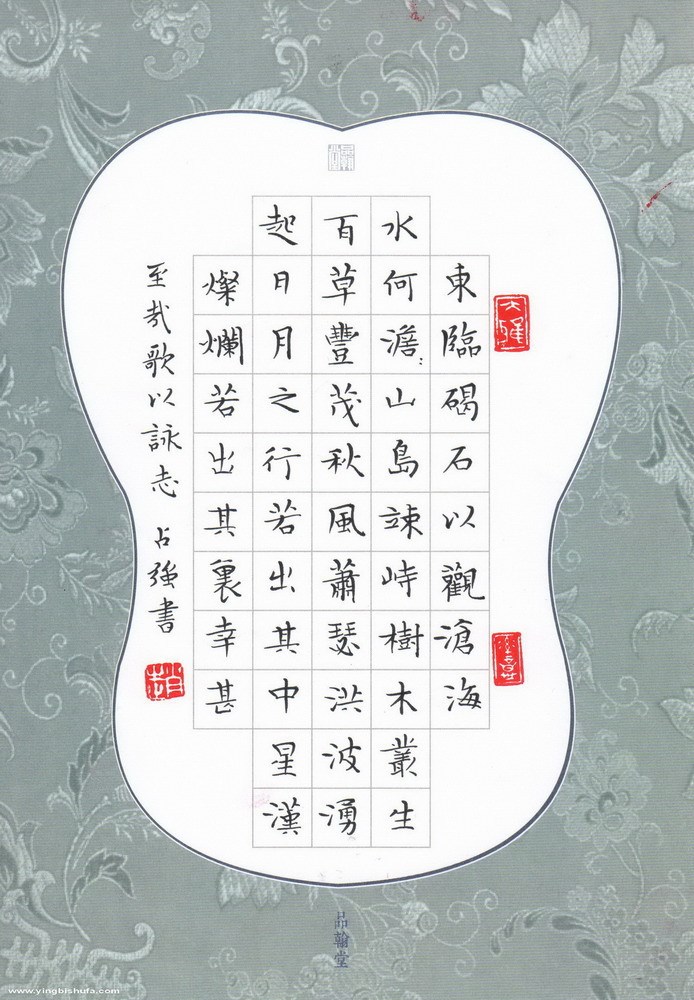 東臨碣石以觀滄海
水何澹:山島竦峙樹木叢生
百草豐茂秋風蕭瑟洪波湧
起日月之行若出其中星漢
燦爛若出其裏幸甚
至哉歌以詠志 占強書
品翰堂
www.yingbishufa.com